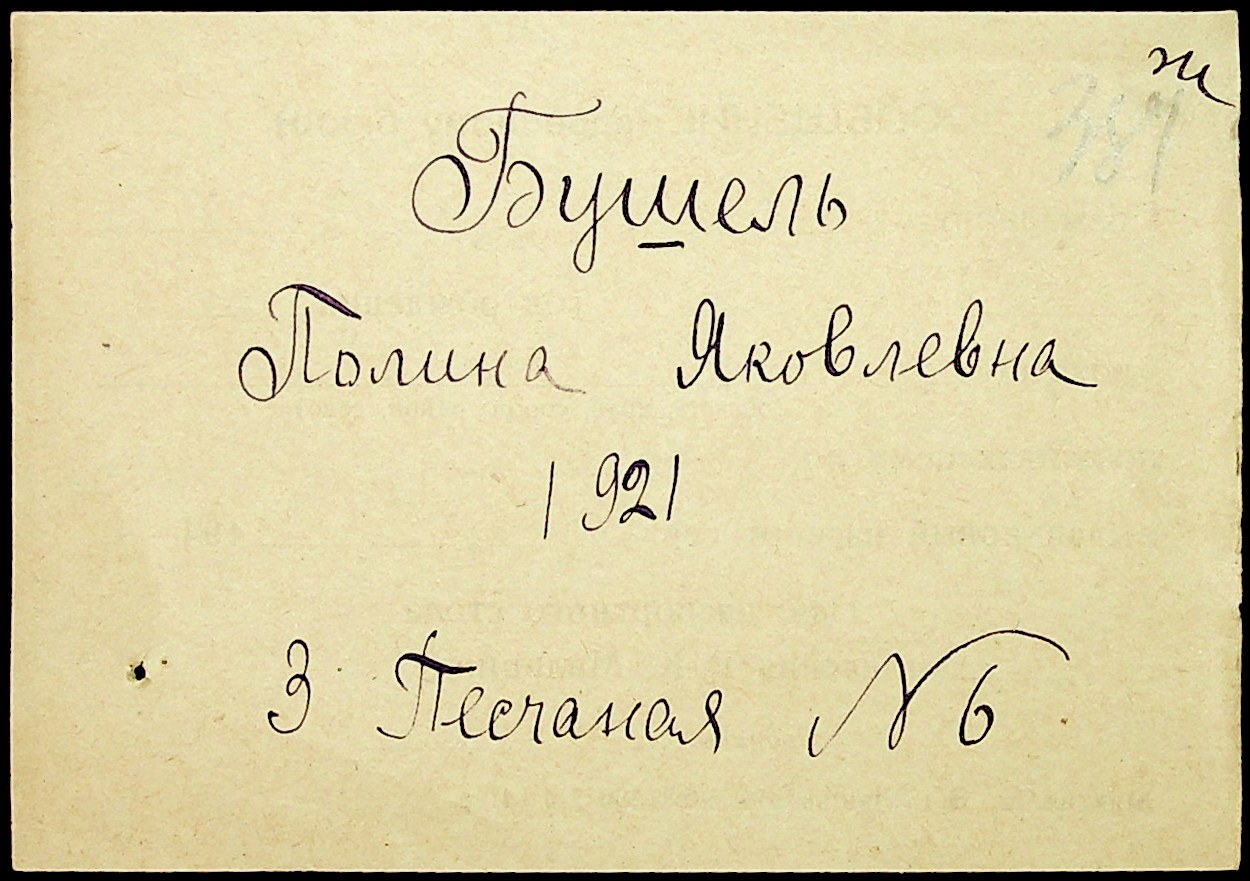 ж
Бушель
Полина Яковлевна
1921
3 Песчаная № 6